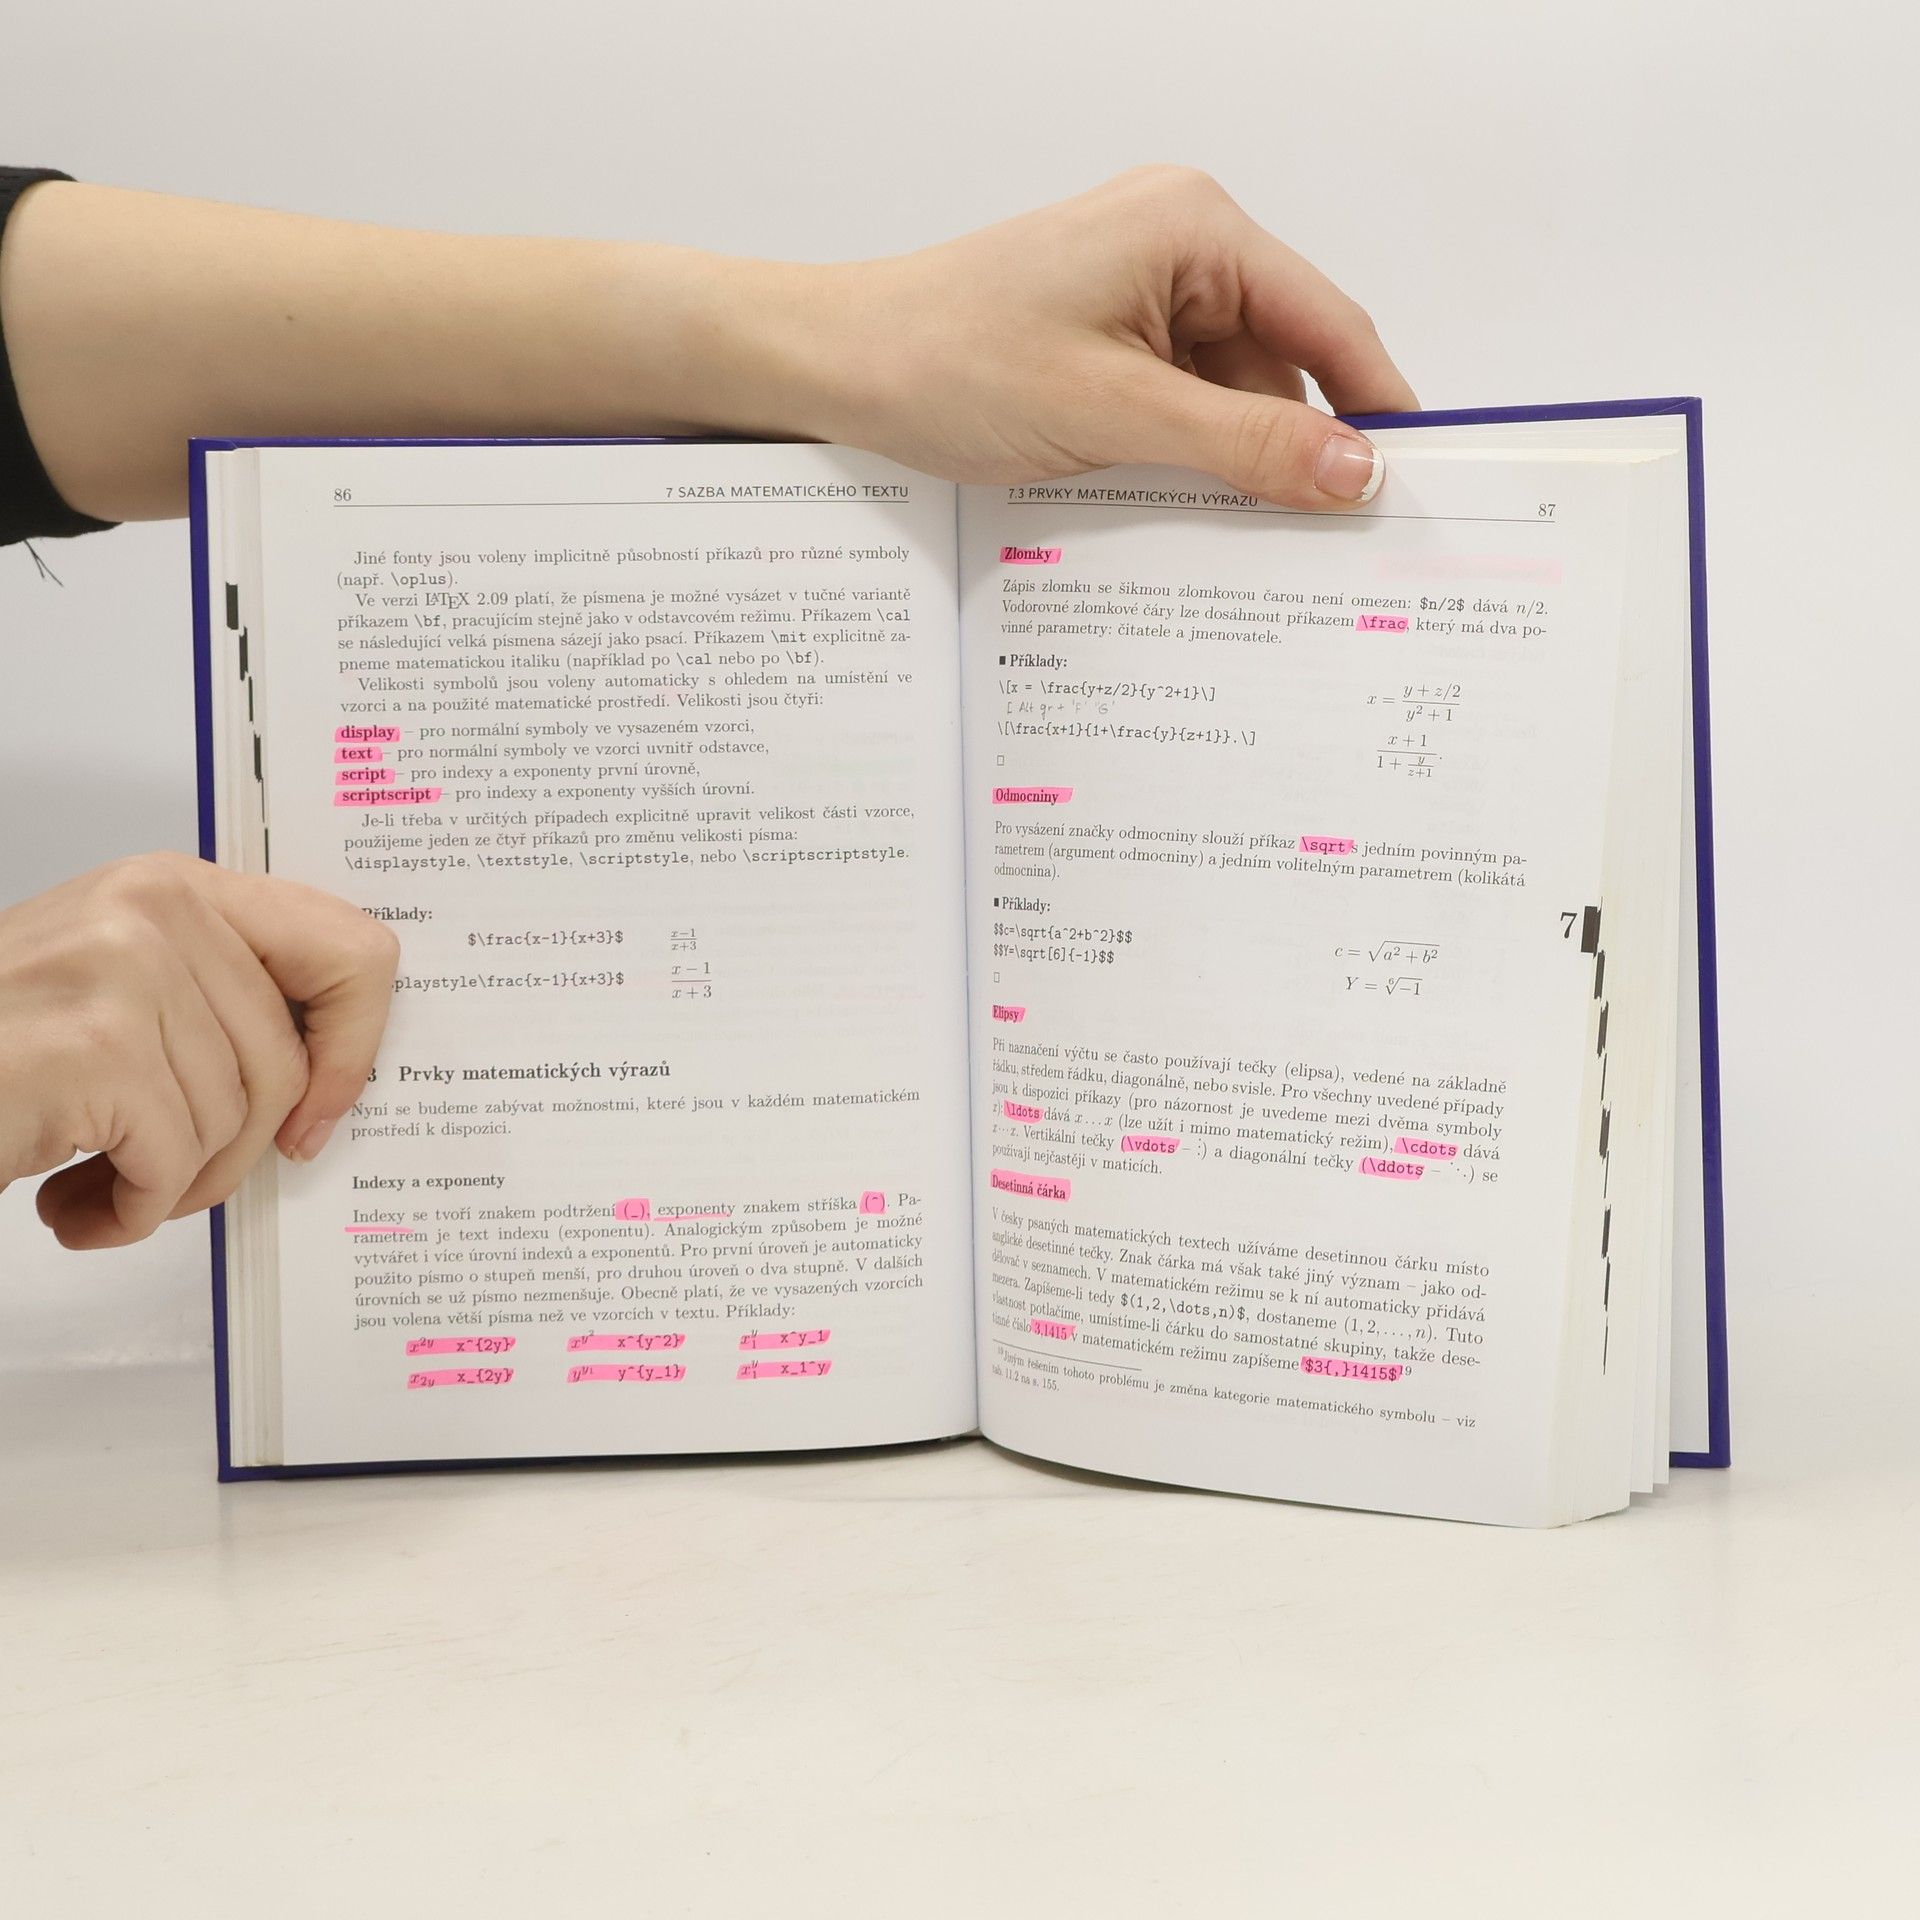 86
7 SAZBA MATEMATICKÉHO TEXTU
Jiné fonty jsou voleny implicitně působností příkazů pro různé symboly
(např. \oplus).
Ve verzi LATEX 2.09 platí, že písmena je možné vysázet v tučné variantě
příkazem \bf, pracujícím stejně jako v odstavcovém režimu. Příkazem \cal
se následující velká písmena sázejí jako psací. Příkazem \mit explicitně za-
pneme matematickou italiku (například po \cal nebo po \bf).
Velikosti symbolů jsou voleny automaticky s ohledem na umístění ve
vzorci a na použité matematické prostředí. Velikosti jsou čtyři:
display – pro normální symboly ve vysazeném vzorci,
text – pro normální symboly ve vzorci uvnitř odstavce,
script – pro indexy a exponenty první úrovně,
scriptscript – pro indexy a exponenty vyšších úrovní.
Je-li třeba v určitých případech explicitně upravit velikost části vzorce,
použijeme jeden ze čtyř příkazů pro změnu velikosti písma:
\displaystyle, \textstyle, \scriptstyle, nebo \scriptscriptstyle.
Příklady:
$\frac{x-1}{x+3}$ x−1
x+3
playstyle\frac{x-1}{x+3}$ x − 1
x + 3
3 Prvky matematických výrazů
Nyní se budeme zabývat možnostmi, které jsou v každém matematickém
prostředí k dispozici.
Indexy a exponenty
Indexy se tvoří znakem podtržení (_), exponenty znakem stříška (^). Pa-
rametrem je text indexu (exponentu). Analogickým způsobem je možné
vytvářet i více úrovní indexů a exponentů. Pro první úroveň je automaticky
použito písmo o stupeň menší, pro druhou úroveň o dva stupně. V dalších
úrovních se už písmo nezmenšuje. Obecně platí, že ve vysazených vzorcích
jsou volena větší písma než ve vzorcích v textu. Příklady:
x²ʸ x^{2y} xʸ² x^{y^2} x₁ʸ x^y_1
x₂y x_{2y} yʸ¹ y^{y_1} x₁ʸ x_1^y
7.3 PRVKY MATEMATICKÝCH VÝRAZŮ
87
Zlomky
Zápis zlomku se šikmou zlomkovou čarou není omezen: $n/2$ dává n/2.
Vodorovné zlomkové čáry lze dosáhnout příkazem \frac, který má dva po-
vinné parametry: čitatele a jmenovatele.
■ Příklady:
\[x = \frac{y+z/2}{y^2+1}\] x = y + z/2
y² + 1
[ Alt gr + 'F' "G'
\[\frac{x+1}{1+\frac{y}{z+1}}.\] x + 1
1 + y
z+1 .
▯
Odmocniny
Pro vysázení značky odmocniny slouží příkaz \sqrt s jedním povinným pa-
rametrem (argument odmocniny) a jedním volitelným parametrem (kolikátá
odmocnina).
■ Příklady:
$$c=\sqrt{a^2+b^2}$$ c = √a² + b²
$$Y=\sqrt[6]{-1}$$ Y = ⁶√−1
▯
Elipsy
Při naznačení výčtu se často používají tečky (elipsa), vedené na základně
řádku, středem řádku, diagonálně, nebo svisle. Pro všechny uvedené případy
jsou k dispozici příkazy (pro názornost je uvedeme mezi dvěma symboly
x): \ldots dává x…x (lze užít i mimo matematický režim), \cdots dává
x⋯x. Vertikální tečky (\vdots – ⋮) a diagonální tečky (\ddots – ⋱) se
používají nejčastěji v maticích.
Desetinná čárka
V česky psaných matematických textech užíváme desetinnou čárku místo
anglické desetinné tečky. Znak čárka má však také jiný význam – jako od-
dělovač v seznamech. V matematickém režimu se k ní automaticky přidává
mezera. Zapíšeme-li tedy $(1,2,\dots,n)$, dostaneme (1, 2, …, n). Tuto
vlastnost potlačíme, umístíme-li čárku do samostatné skupiny, takže dese-
tinné číslo 3,1415 v matematickém režimu zapíšeme $3{,}1415$¹⁹
¹⁹ Jiným řešením tohoto problému je změna kategorie matematického symbolu – viz
tab. 11.2 na s. 155.
7